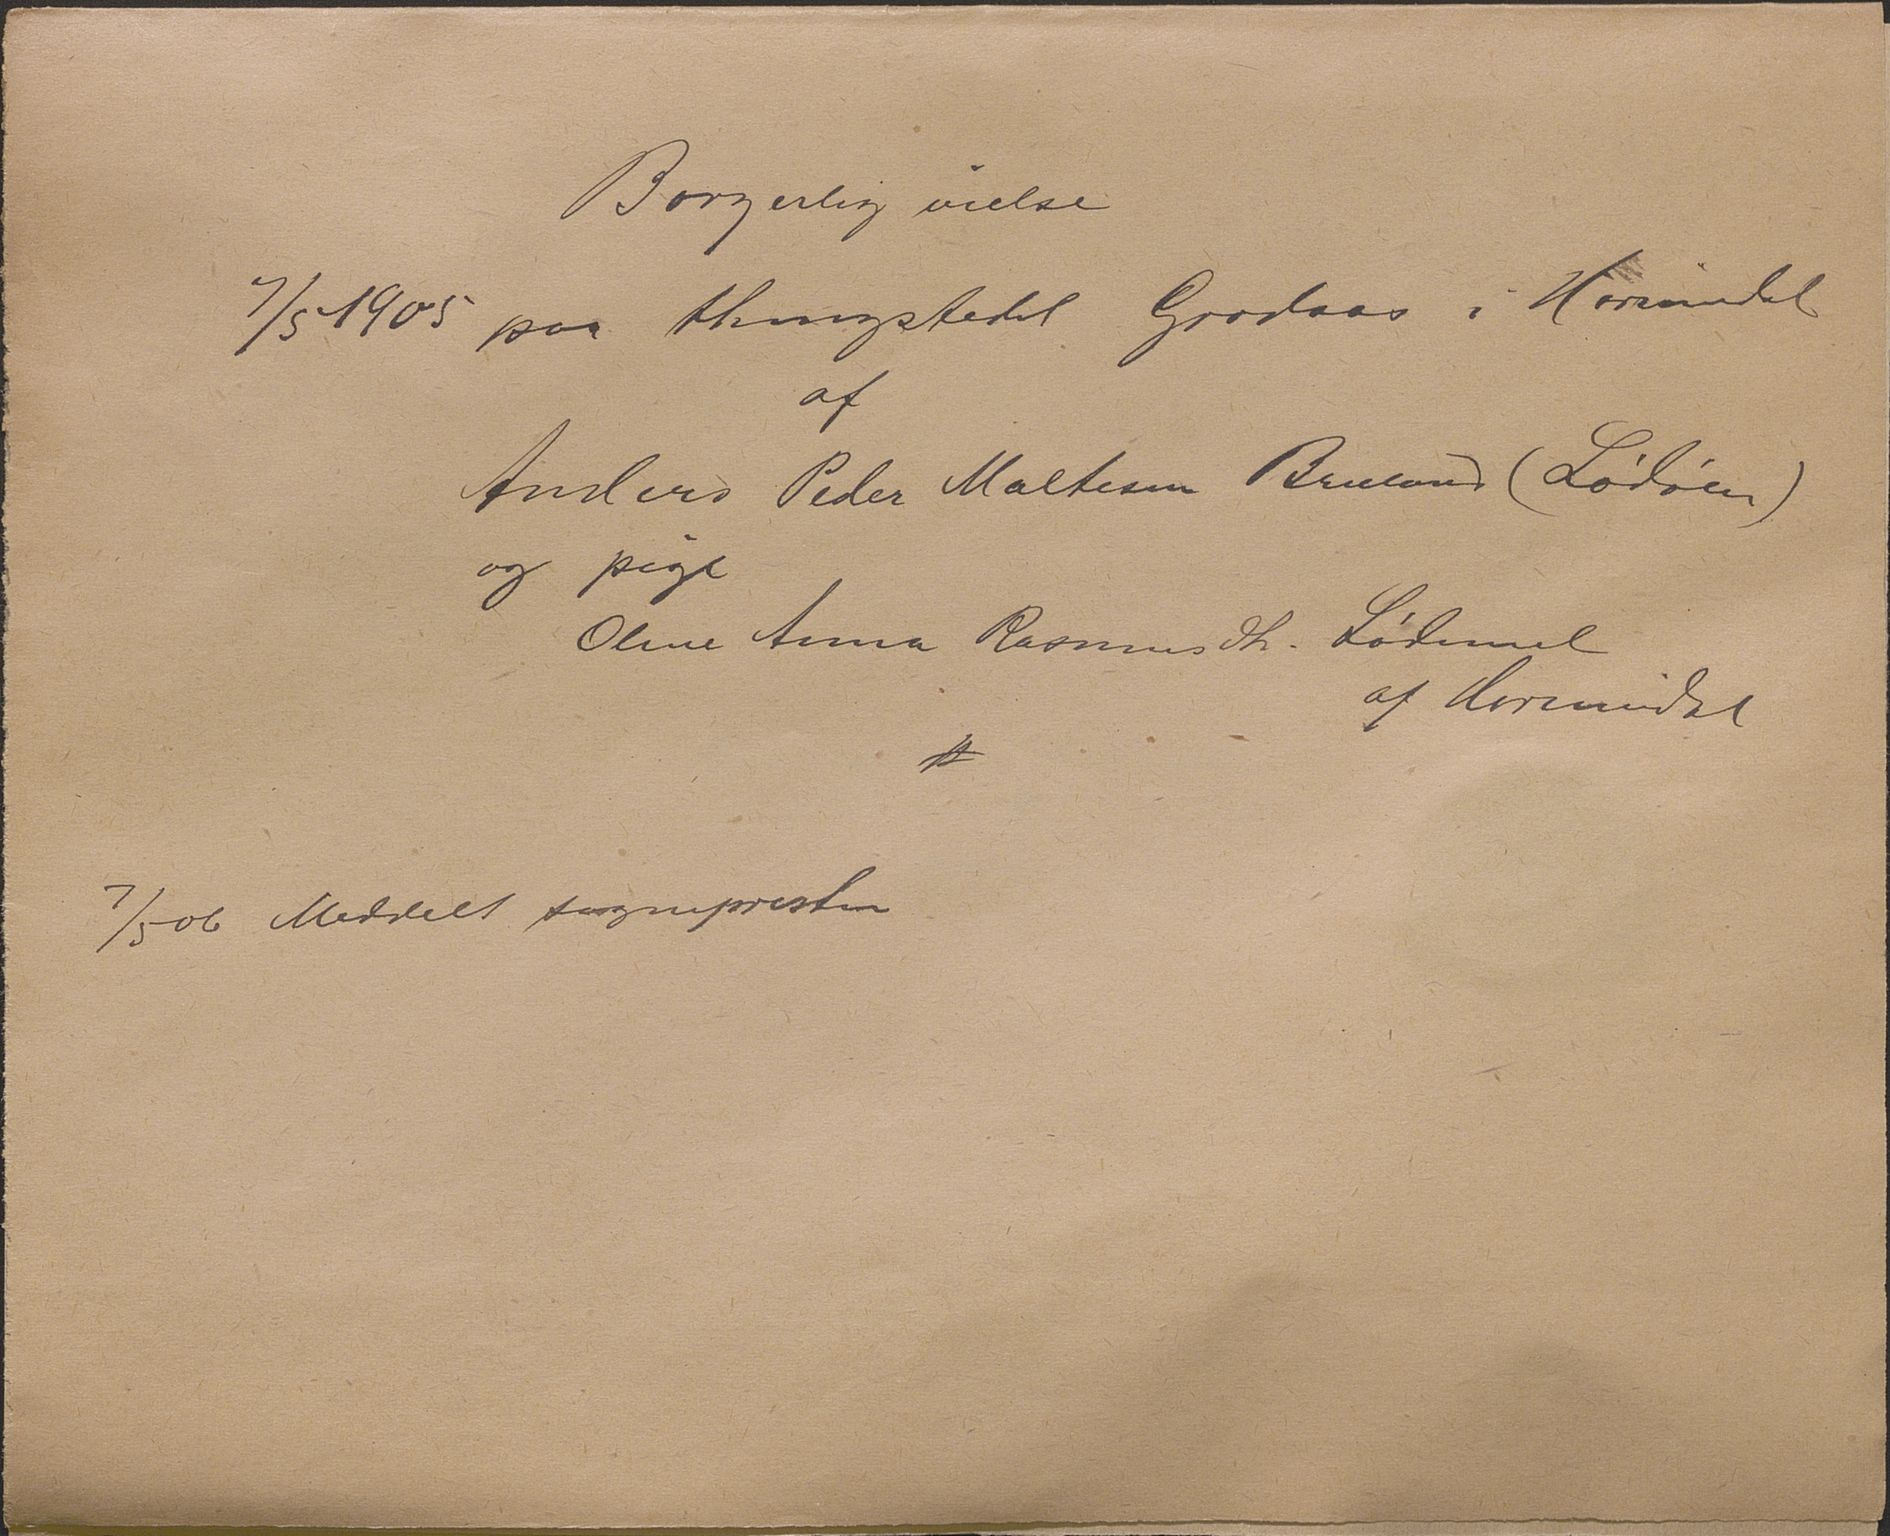 Borgerlig vielse
7/5 1905 paa thingstedet Grodaas i Hornindal
af
Anders Peder Maltesen (Lødøen)
og pige
Oline Anna Rasmusdtr. Lødemel
af Hornindal
7/5 06 Meddelt sognepresten